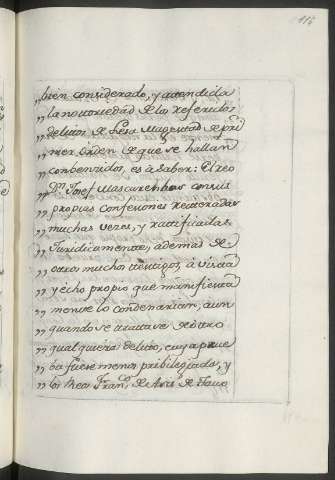 118
„ bien considerado, y atendida
„ la notoriedad de los referidos
„ delitos de Lesa Magestad de pri
„ mer orden de que se hallan
„ conbenzidos, es à saber: El reo
„ Dn. Josef Mascarenhas con sus
„ propias confesiones reiteradas
„ muchas vezes, y ratificadas
„ Juridicamente, además de
„ otros muchos testigos, à vista
„ y echo propio que manifiesta
„ mente lo condenarian, aun
„ quando se tratase de otro
„ qualquiera delito, cuya prue
„ ba fuese menos pribilegiada, y
„ los Reos Franco. de Asis de Tavo